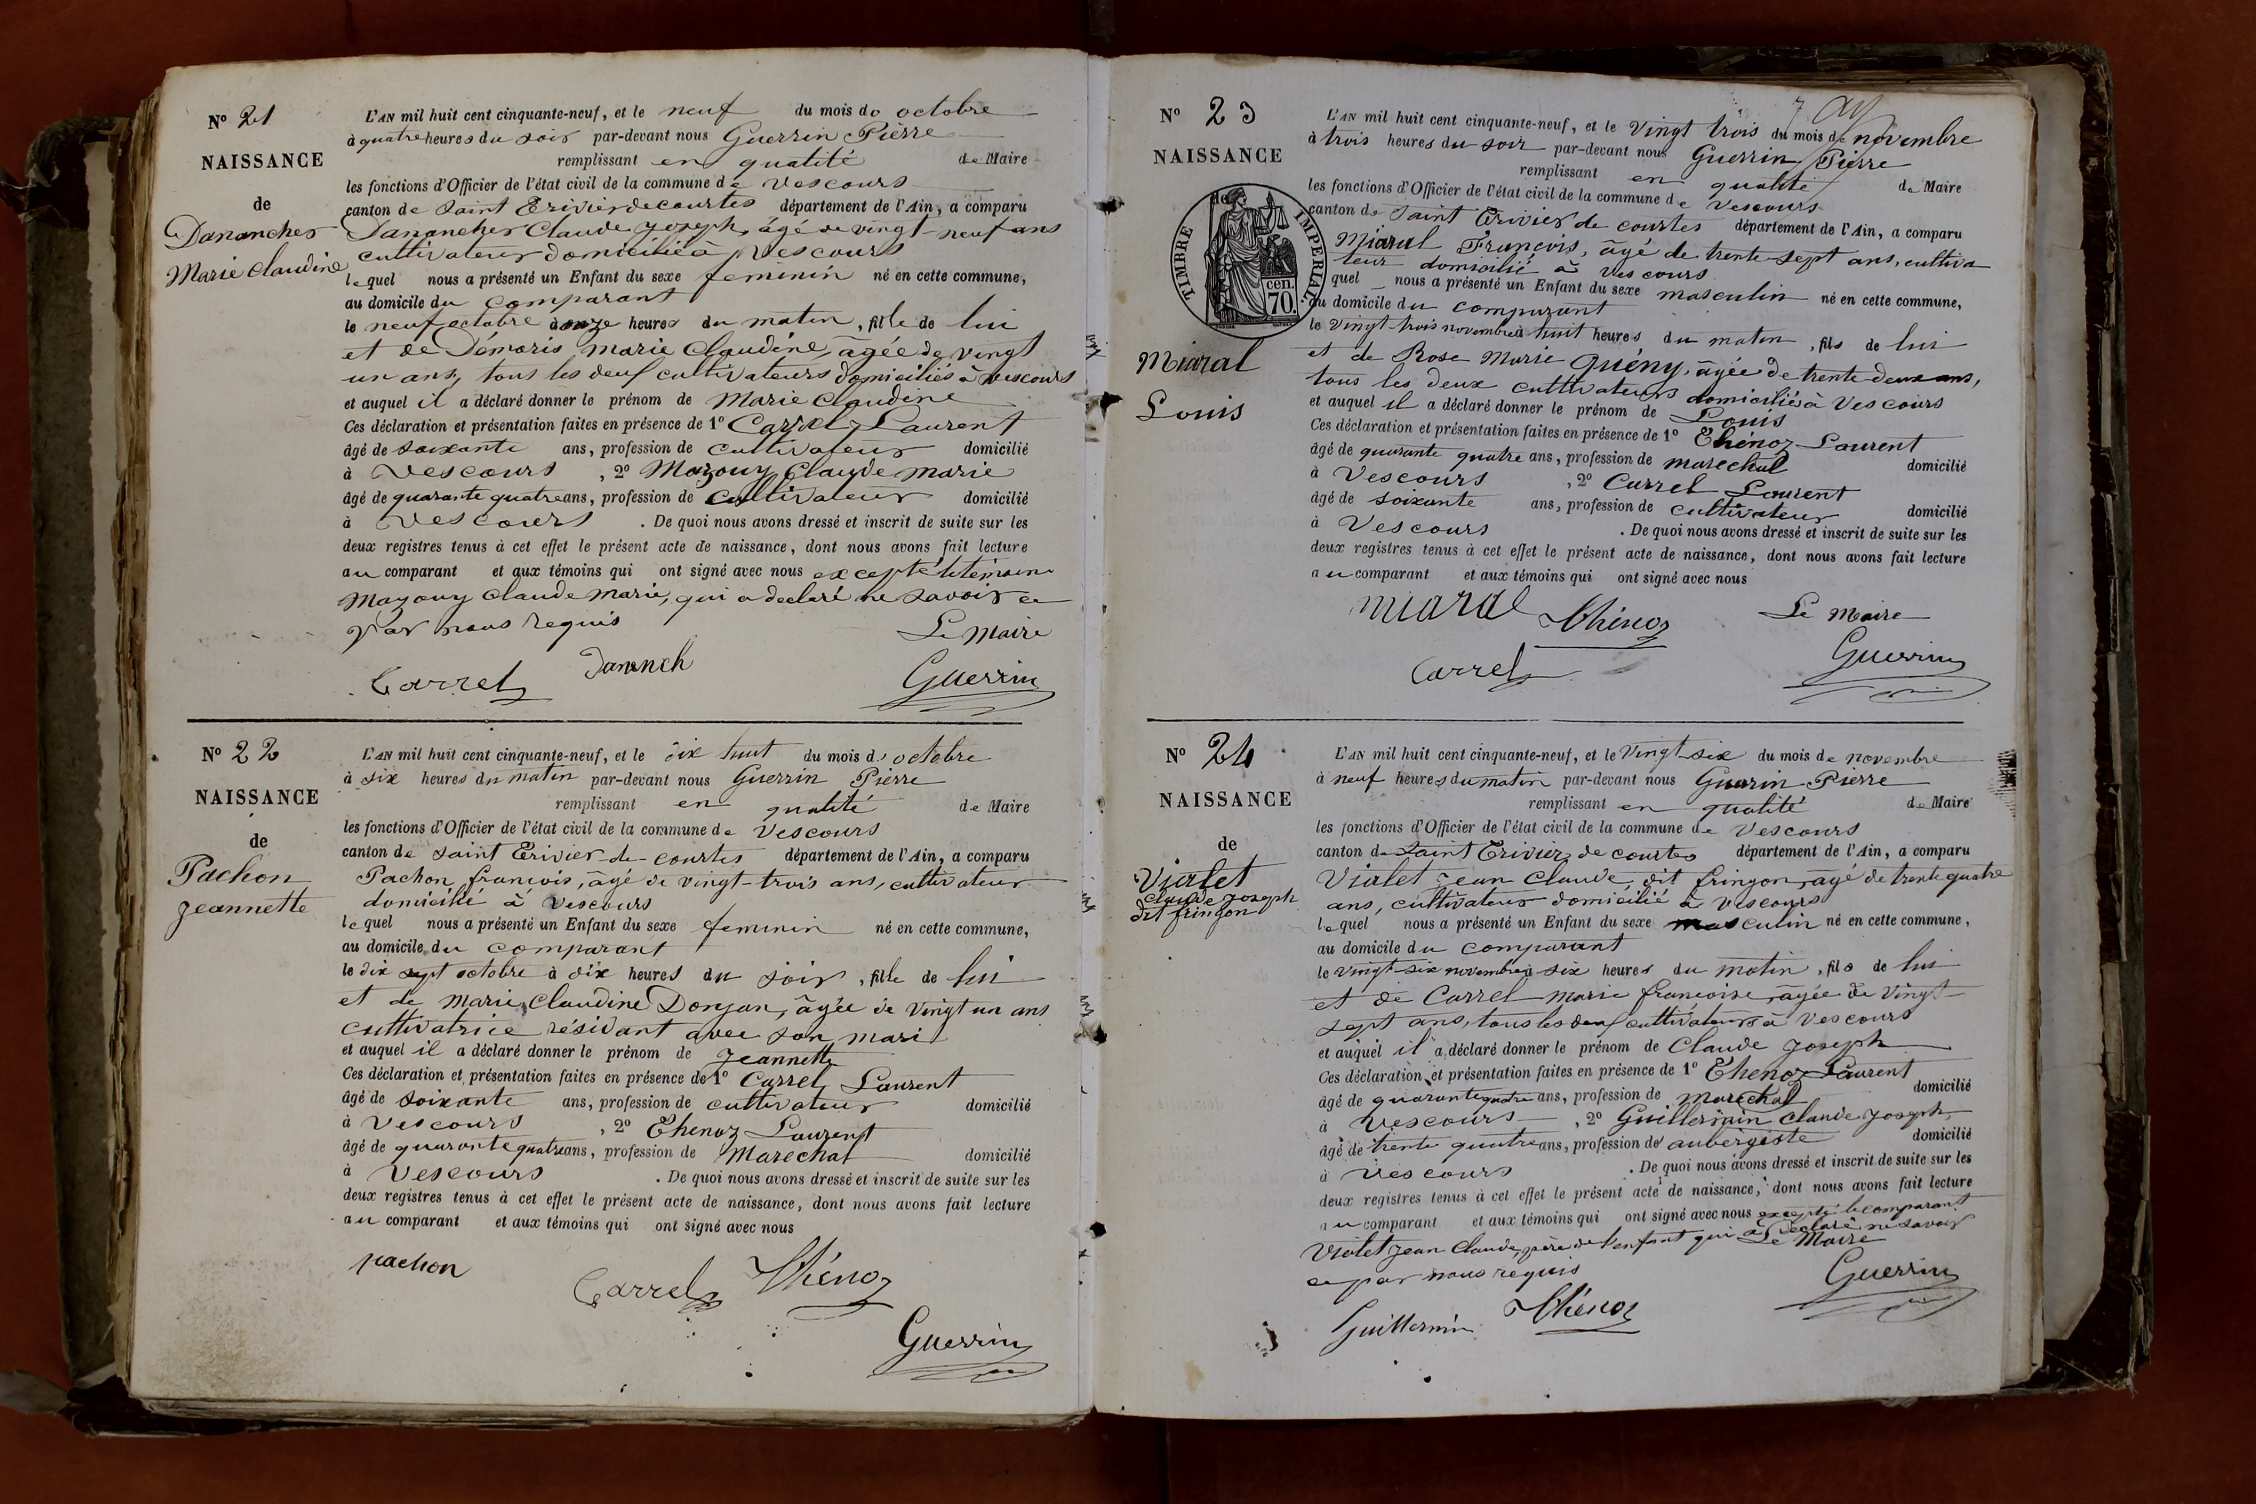 N° 21
NAISSANCE
de
Dananches
Marie Claudine
L'AN mil huit cent cinquante-neuf, et le neuf du mois de octobre
à quatre heures du soir par-devant nous Guerrin Pierre
remplissant en qualité de Maire
les fonctions d'Officier de l'état civil de la commune de Vescours
canton de Saint Trivier de courtes département de l'Ain, a comparu
Dananches Claude Joseph, âgé de vingt-neuf ans
cultivateur domicilié à Vescours
lequel nous a présenté un Enfant du sexe feminin né en cette commune,
au domicile du comparant
le neuf octobre à onze heures du matin, fille de lui
et de Démaris marie Claudine, âgée de vingt
un ans, tous les deux cultivateurs domiciliés à Vescours
et auquel il a déclaré donner le prénom de Marie Claudine
Ces déclaration et présentation faites en présence de 1° Carrel Laurent
âgé de soixante ans, profession de cultivateur domicilié
à Vescours, 2° Mazouy Claude marie
âgé de quarante quatre ans, profession de cultivateur domicilié
à Vescours. De quoi nous avons dressé et inscrit de suite sur les
deux registres tenus à cet effet le présent acte de naissance, dont nous avons fait lecture
au comparant et aux témoins qui ont signé avec nous excepté le témoin
Mazouy Claude marie, qui a declaré ne savoir ce
par nous requis
Le Maire
Carrel Dananch Guerrin
N° 22
NAISSANCE
de
Pachon
Jeannette
L'AN mil huit cent cinquante-neuf, et le dix huit du mois d'octobre
à six heures du matin par-devant nous Guerrin Pierre
remplissant en qualité de Maire
les fonctions d'Officier de l'état civil de la commune de Vescours
canton de Saint Trivier-de-courtes département de l'Ain, a comparu
Pachon françois, âgé de vingt-trois ans, cultivateur
domicilié à Vescours
lequel nous a présenté un Enfant du sexe feminin né en cette commune,
au domicile du comparant
le dix sept octobre à dix heures du soir, fille de lui
et de Marie Claudine Donjan, âgée de vingt un ans
cultivatrice résidant avec son mari
et auquel il a déclaré donner le prénom de Jeannette
Ces déclaration et présentation faites en présence de 1° Carrel Laurent
âgé de soixante ans, profession de cultivateur domicilié
à Vescours, 2° Thenoz Laurent
âgé de quarante quatre ans, profession de Marechal domicilié
à Vescours. De quoi nous avons dressé et inscrit de suite sur les
deux registres tenus à cet effet le présent acte de naissance, dont nous avons fait lecture
au comparant et aux témoins qui ont signé avec nous
pachon Carrel Thénoz
Guerrin
N° 23
NAISSANCE
de
TIMBRE IMPERIAL
cen.
70.
Miaral
Louis
L'AN mil huit cent cinquante-neuf, et le vingt trois du mois de novembre
à trois heures du soir par-devant nous Guerrin Pierre
remplissant en qualité de Maire
les fonctions d'Officier de l'état civil de la commune de Vescours
canton de Saint Trivier de courtes département de l'Ain, a comparu
Miaral François, âgé de trente-sept ans, cultiva
teur domicilié à Vescours
quel nous a présenté un Enfant du sexe masculin né en cette commune,
au domicile du comparant
le vingt-trois novembre à huit heures du matin, fils de lui
et de Rose Marie Quény, âgée de trente deux ans,
tous les deux cultivateurs domicilié à Vescours
et auquel il a déclaré donner le prénom de Louis
Ces déclaration et présentation faites en présence de 1° Thénoz Laurent
âgé de quarante quatre ans, profession de marechal domicilié
à Vescours, 2° Carrel Laurent
âgé de soixante ans, profession de cultivateur domicilié
à Vescours. De quoi nous avons dressé et inscrit de suite sur les
deux registres tenus à cet effet le présent acte de naissance, dont nous avons fait lecture
au comparant et aux témoins qui ont signé avec nous
miaral Thénoz Le Maire
Carrel Guerrin
N° 24
NAISSANCE
de
Vialet
Claude Joseph
dit fringon
L'AN mil huit cent cinquante-neuf, et le vingt six du mois de novembre
à neuf heures du matin par-devant nous Guerrin Pierre
remplissant en qualité de Maire
les fonctions d'Officier de l'état civil de la commune de Vescours
canton de Saint Trivier de courtes département de l'Ain, a comparu
Vialet Jean Claude, dit fringon, âgé de trente quatre
ans, cultivateur domicilié à Vescours
lequel nous a présenté un Enfant du sexe masculin né en cette commune,
au domicile du comparant
le vingt-six novembre à six heures du matin, fils de lui
et de Carrel marie françoise, âgée de vingt-
sept ans, tous les deux cultivateurs à Vescours
et auquel il a déclaré donner le prénom de Claude Joseph
Ces déclaration et présentation faites en présence de 1° Thenoz Laurent
âgé de quarante quatre ans, profession de marechal domicilié
à Vescours, 2° Guillermin Claude Joseph
âgé de trente quatre ans, profession de aubergiste domicilié
à Vescours. De quoi nous avons dressé et inscrit de suite sur les
deux registres tenus à cet effet le présent acte de naissance, dont nous avons fait lecture
au comparant et aux témoins qui ont signé avec nous excepté le comparant
Vialet Jean Claude, père de l'enfant qui a declaré ne savoir
ce par nous requis Le Maire
Guillermin Thénoz Guerrin